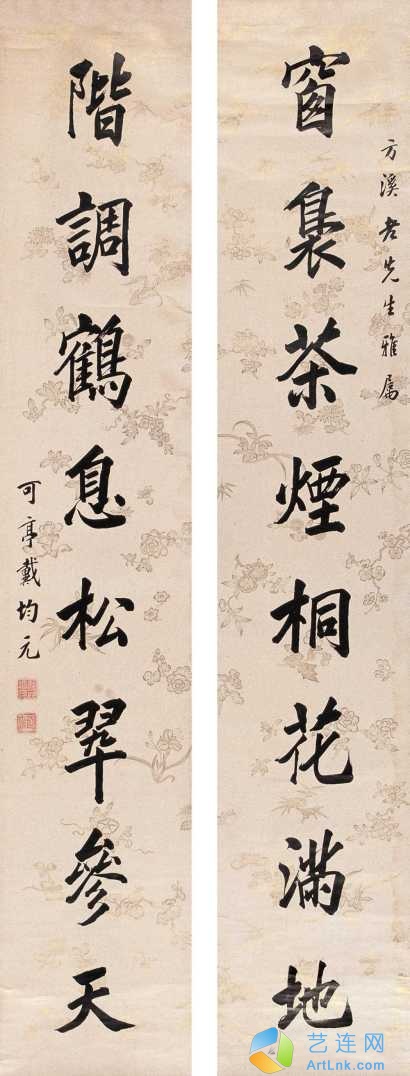 方溪老先生雅屬
窗裊茶煙桐花滿地
階調鶴息松翠參天
可亭戴均元
艺连网
ArtLnk.com